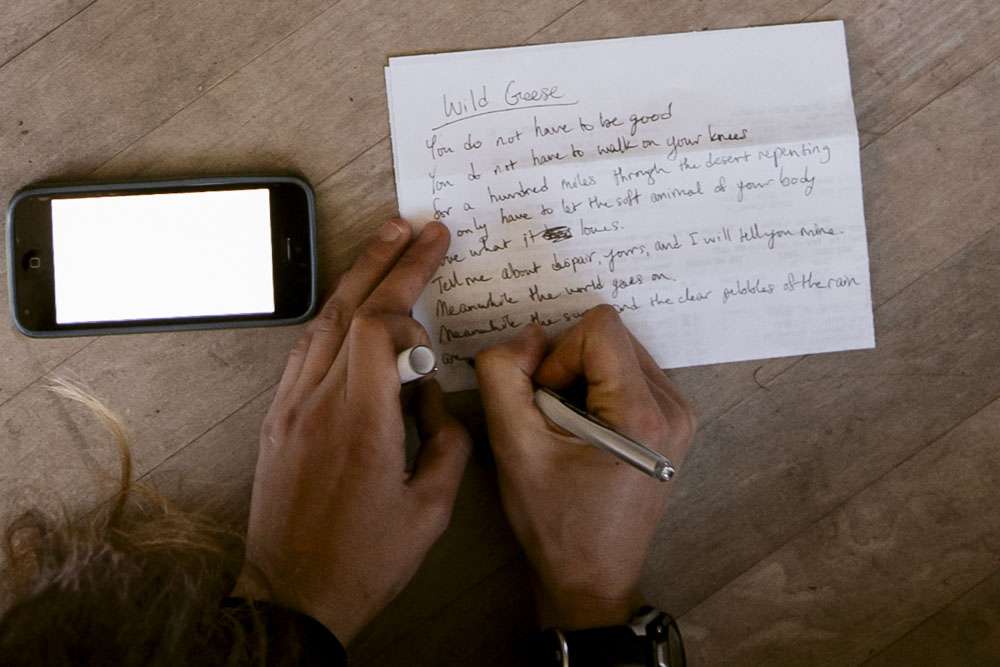 Wild Geese
You do not have to be good
You do not have to walk on your knees
for a hundred miles through the desert repenting
only have to let the soft animal of your body
what it loves.
Tell me about despair, yours, and I will tell you mine.
Meanwhile the world goes on.
Meanwhile the sun and the clear pebbles of the rain